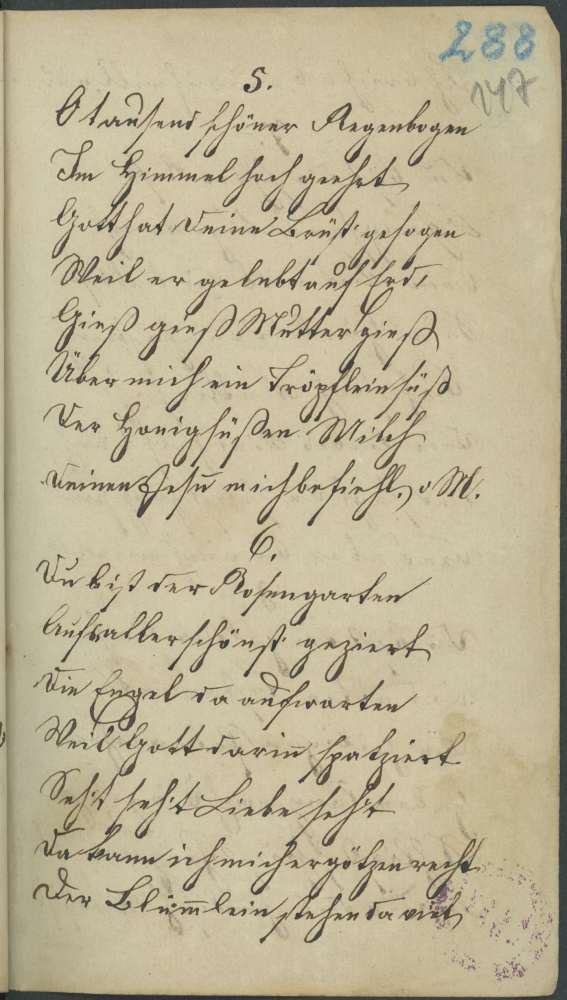 288
147
5.
O tausend schöner Regenbogen
Im Himmel hoch geehrt
Gott hat deine Brüst gesogen
Weil er gelebt auf Erd,
Gieß gieß Mutter gieß
Über mich ein Tröpflein süß
Der Honigsüßen Milch
Deinen Jesu mich befiehl, o M.
6.
Du bist der Rosengarten
Aufs allerschönst geziert
Die Engel da aufwarten
Weil Gott darin spatziert
Seh't seh't Liebe seh't
Da kann ich mich ergötzen recht
Der Blümlein stehen da viel